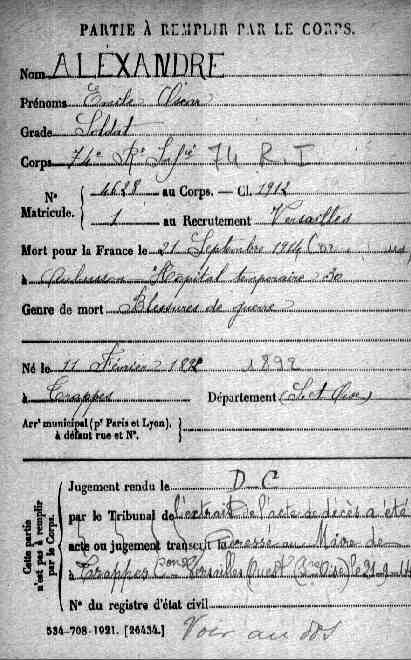 PARTIE À REMPLIR PAR LE CORPS.
Nom ALEXANDRE
Prénoms Emile
Grade Soldat
Corps 74e Rt Infie 74 R.I
N° Matricule. { 4628 au Corps. — Cl. 1912
1 au Recrutement Versailles
Mort pour la France le 21 Septembre 1914
à Aubusson Hôpital temporaire 30
Genre de mort Blessures de guerre
Né le 11 Février 1892 1892
à Trappes Département (S. et Oise)
Arrt municipal (pr Paris et Lyon), à défaut rue et N°. }
Cette partie n'est pas à remplir par le Corps.
Jugement rendu le D C
par le Tribunal de l'extrait de l'acte de décès a été
acte ou jugement transcrit le adressé au Maire de
à Trappes Versailles Ouest (Sne Oise) le 21-9-14
N° du registre d'état civil
534-708-1921. [26434.]
Voir au dos